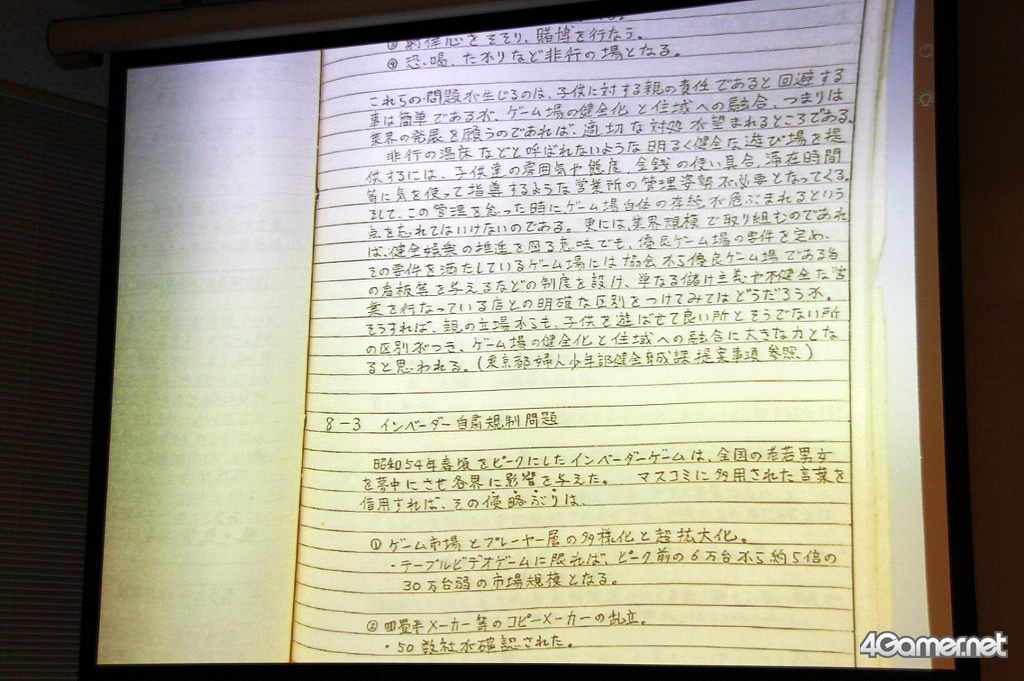 ③ 射倖心をそそり、賭博を行なう。
④ 恐喝、たかりなど非行の場となる。
これらの問題が生じるのは、子供に対する親の責任であると回避する
事は簡単であるが、ゲーム場の健全化と住域への融合、つまりは
業界の発展を願うのであれば、適切な対処が望まれるところである。
非行の温床などと呼ばれないような明るく健全な遊び場を提
供するには、子供達の雰囲気や態度、金銭の使い具合、滞在時間
等に気を使って指導するような営業所の管理姿勢が必要となってくる。
そして、この管理を怠った時にゲーム場自体の存続が危ぶまれるという
点を忘れてはいけないのである。更には、業界規模で取り組むのであれ
ば、健全娯楽の推進を図る意味でも、優良ゲーム場の要件を定め、
その要件を満たしているゲーム場には協会から優良ゲーム場である旨
の看板等を与えるなどの制度を設け、単なる儲け主義や不健全な営
業を行なっている店との明確な区別をつけてみてはどうだろうか。
そうすれば、親の立場からも、子供を遊ばせて良い所とそうでない所
の区別がつき、ゲーム場の健全化と住域への融合に大きな力とな
ると思われる。(東京都婦人少年部健全育成課提案事項 参照)
8-3 インベーダー自粛規制問題
昭和54年春頃をピークにしたインベーダーゲームは、全国の老若男女
を夢中にさせ各界に影響を与えた。 マスコミに多用された言葉を
借用すれば、その侵略ぶりは、
① ゲーム市場とプレーヤー層の多様化と超拡大化。
・テーブルビデオゲームに限れば、ピーク前の6万台から約5倍の
30万台弱の市場規模となる。
② 四畳半メーカー等のコピーメーカーの乱立。
・50数社が確認された。
4Gamer.net